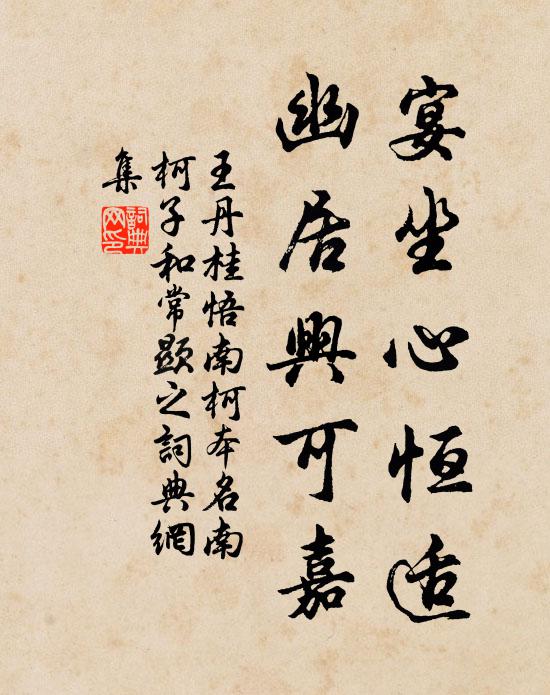 宴坐心恒适
幽居興可嘉
王丹桂悟南柯本名南
柯子和常顯之詞典網
集
詞典
网印